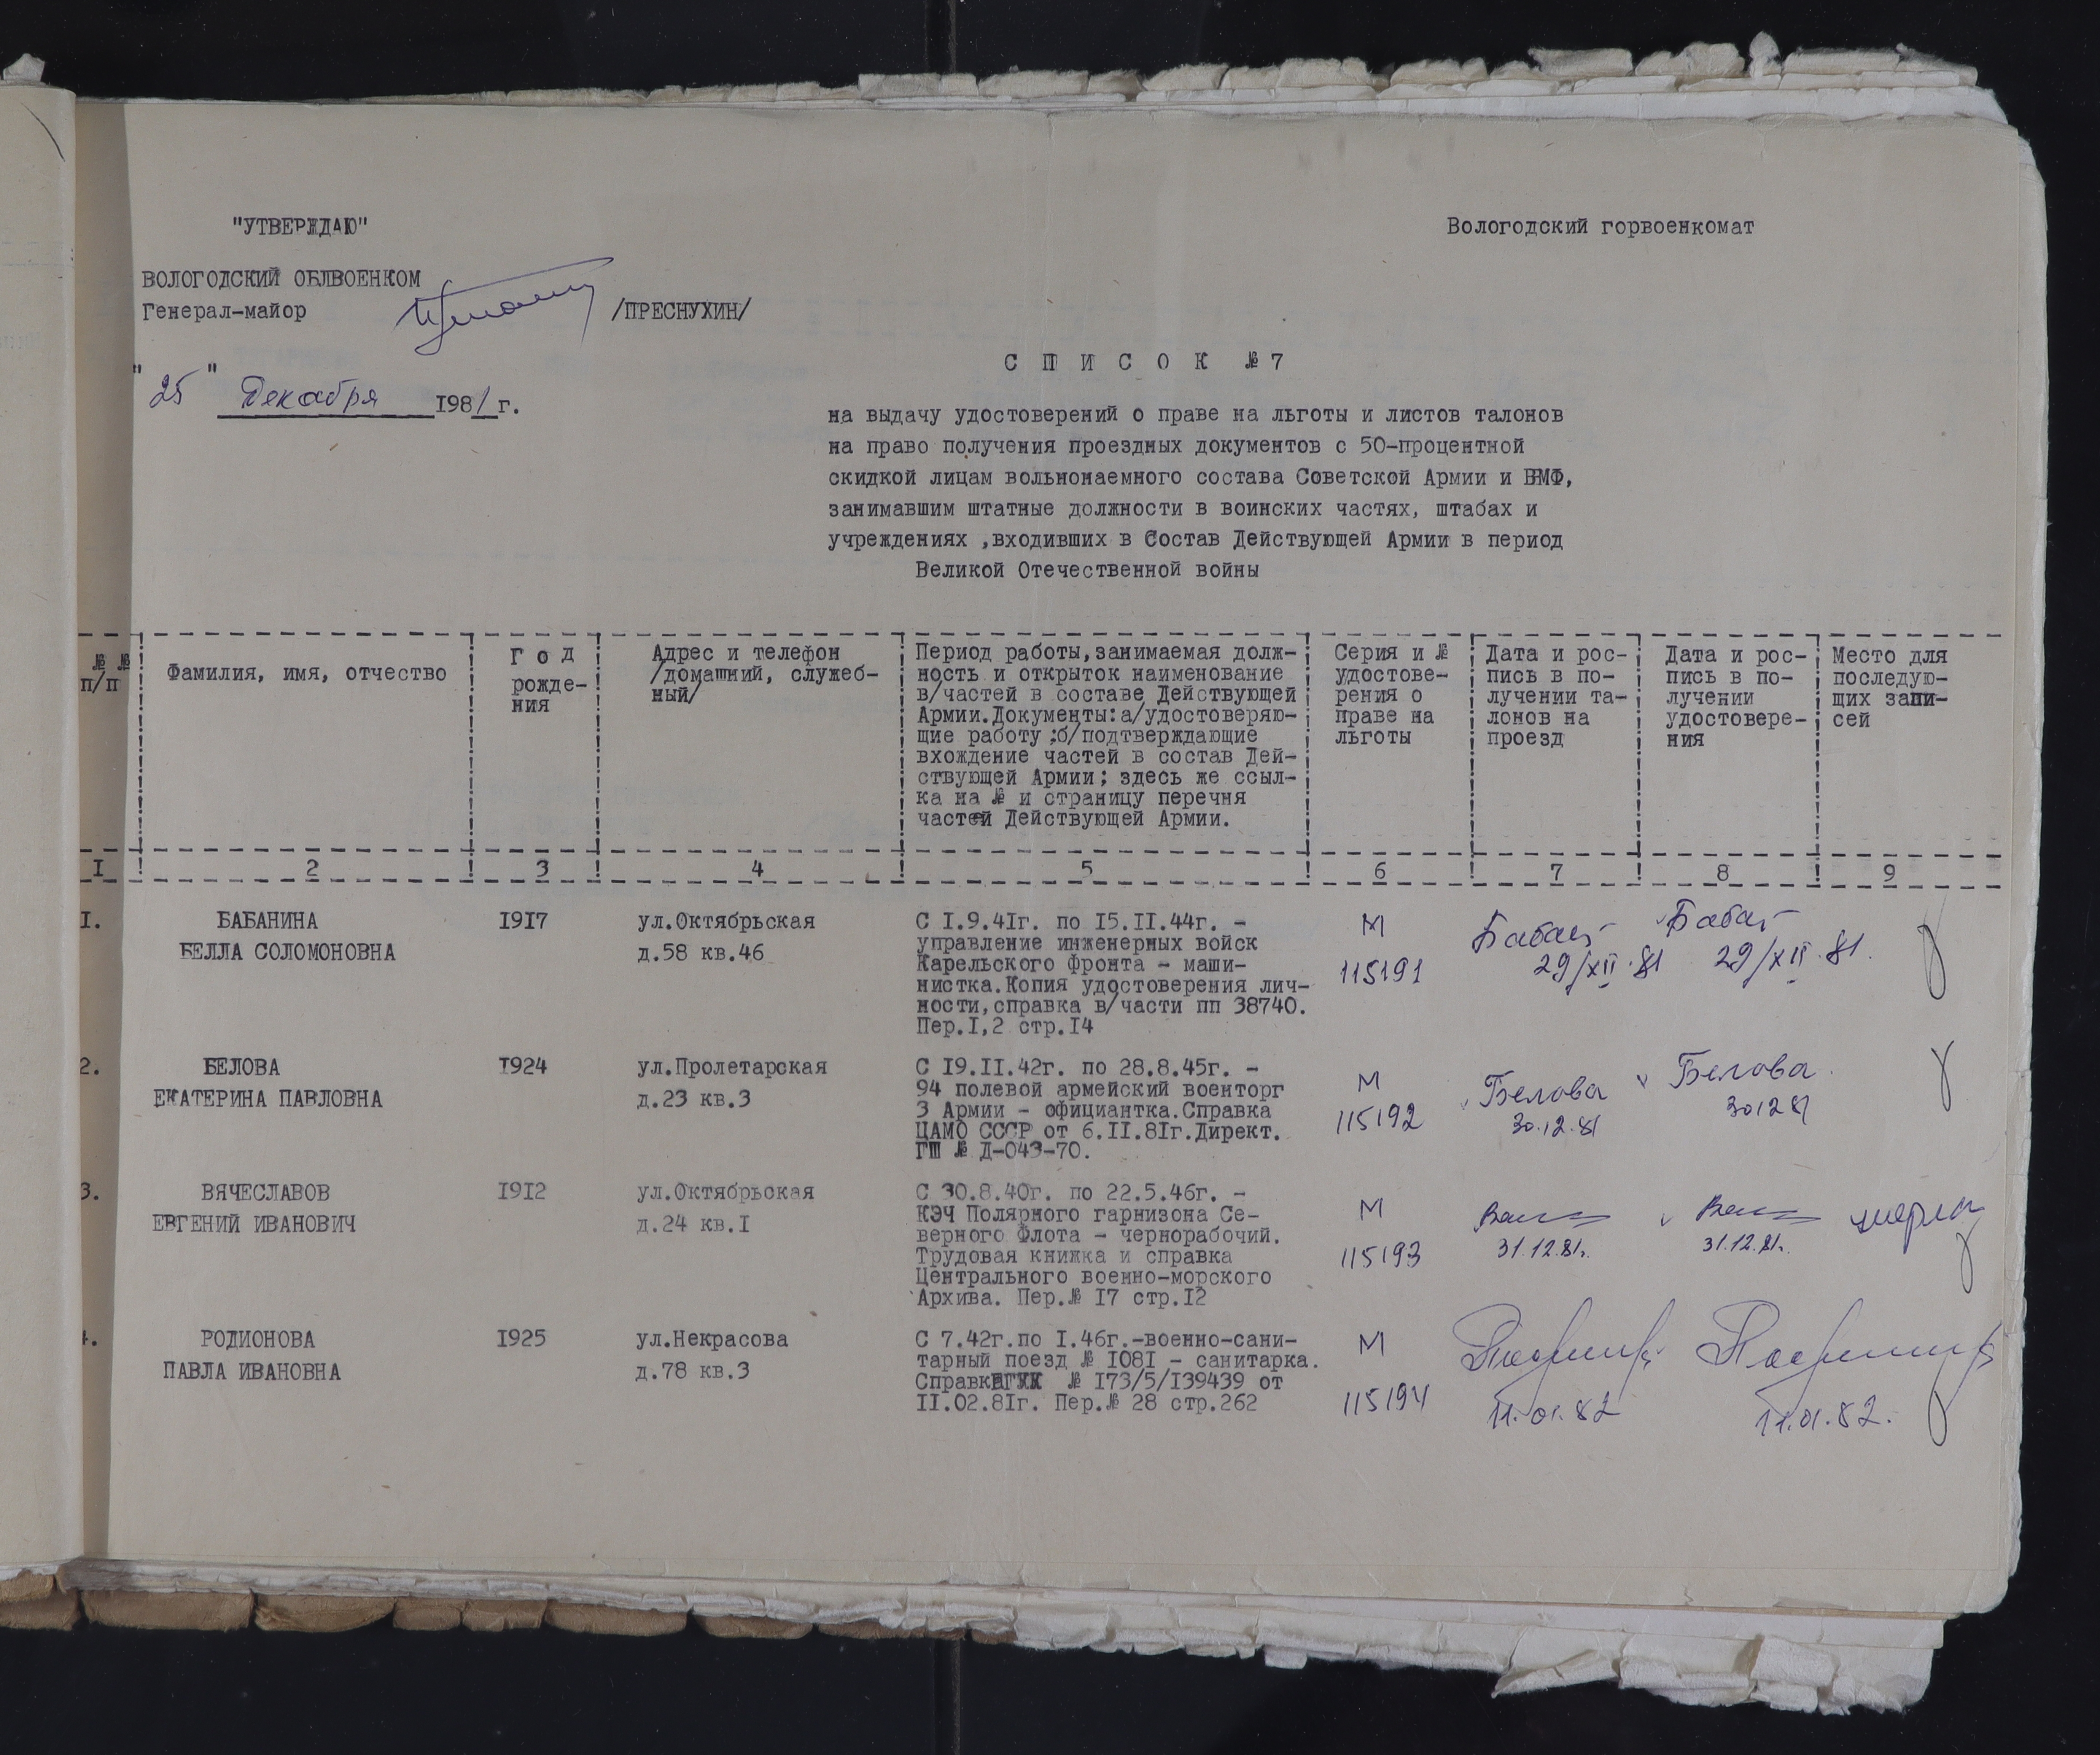 "УТВЕРЖДАЮ"
Вологодский горвоенкомат
ВОЛОГОДСКИЙ ОБЛВОЕНКОМ
Генерал-майор /ПРЕСНУХИН/
"25" Декабря 1981 г.
С П И С О К № 7
на выдачу удостоверений о праве на льготы и листов талонов
на право получения проездных документов с 50-процентной
скидкой лицам вольнонаемного состава Советской Армии и ВМФ,
занимавшим штатные должности в воинских частях, штабах и
учреждениях ,входивших в Состав Действующей Армии в период
Великой Отечественной войны
№ №
п/п
Фамилия, имя, отчество
Г о д
рожде-
ния
Адрес и телефон
/домашний, служеб-
ный/
Период работы,занимаемая долж-
ность и открыток наименование
в/частей в составе Действующей
Армии.Документы:а/удостоверяю-
щие работу ;б/подтверждающие
вхождение частей в состав Дей-
ствующей Армии; здесь же ссыл-
ка на № и страницу перечня
частей Действующей Армии.
Серия и №
удостове-
рения о
праве на
льготы
Дата и рос-
пись в по-
лучении та-
лонов на
проезд
Дата и рос-
пись в по-
лучении
удостовере-
ния
Место для
последую-
щих запи-
сей
I 2 3 4 5 6 7 8 9
I.
БАБАНИНА
БЕЛЛА СОЛОМОНОВНА
I9I7
ул.Октябрьская
д.58 кв.46
С I.9.4Iг. по I5.II.44г. -
управление инженерных войск
Карельского фронта - маши-
нистка.Копия удостоверения лич-
ности,справка в/части пп 38740.
Пер.I,2 стр.I4
М
115191
29/XII.81
29/XII.81.
2.
БЕЛОВА
ЕКАТЕРИНА ПАВЛОВНА
I924
ул.Пролетарская
д.23 кв.3
С I9.II.42г. по 28.8.45г. -
94 полевой армейский военторг
3 Армии - официантка.Справка
ЦАМО СССР от 6.II.8Iг.Директ.
ГШ № Д-043-70.
М
115192
Белова
30.12.81
Белова
30 12 81
3.
ВЯЧЕСЛАВОВ
ЕВГЕНИЙ ИВАНОВИЧ
I9I2
ул.Октябрьская
д.24 кв.I
С 30.8.40г. по 22.5.46г. -
КЭЧ Полярного гарнизона Се-
верного Флота - чернорабочий.
Трудовая книжка и справка
Центрального военно-морского
Архива. Пер.№ I7 стр.I2
М
115193
31.12.81г.
31.12.81г.
4.
РОДИОНОВА
ПАВЛА ИВАНОВНА
I925
ул.Некрасова
д.78 кв.3
С 7.42г.по I.46г.-военно-сани-
тарный поезд № I08I - санитарка.
Справка № I73/5/I39439 от
II.02.8Iг. Пер.№ 28 стр.262
М
115194
11.01.82
11.01.82.